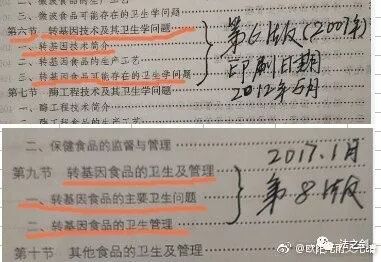 二、微波食品的生产工艺
三、微波食品可能存在的卫生学问题
第六节 转基因技术及其卫生学问题
一、转基因技术简介
二、转基因食品的生产工艺
三、转基因食品可能存在的卫生学问题
第七节 酶工程技术及其卫生学问题
一、酶工程技术简介
第6版(2007年)
印刷日期
2012年6月
二、保健食品的监督与管理
第九节 转基因食品的卫生及管理
一、转基因食品的主要卫生问题
二、转基因食品的卫生管理
第十节 其他食品的卫生及管理
2017.1月
第8版
法之剑